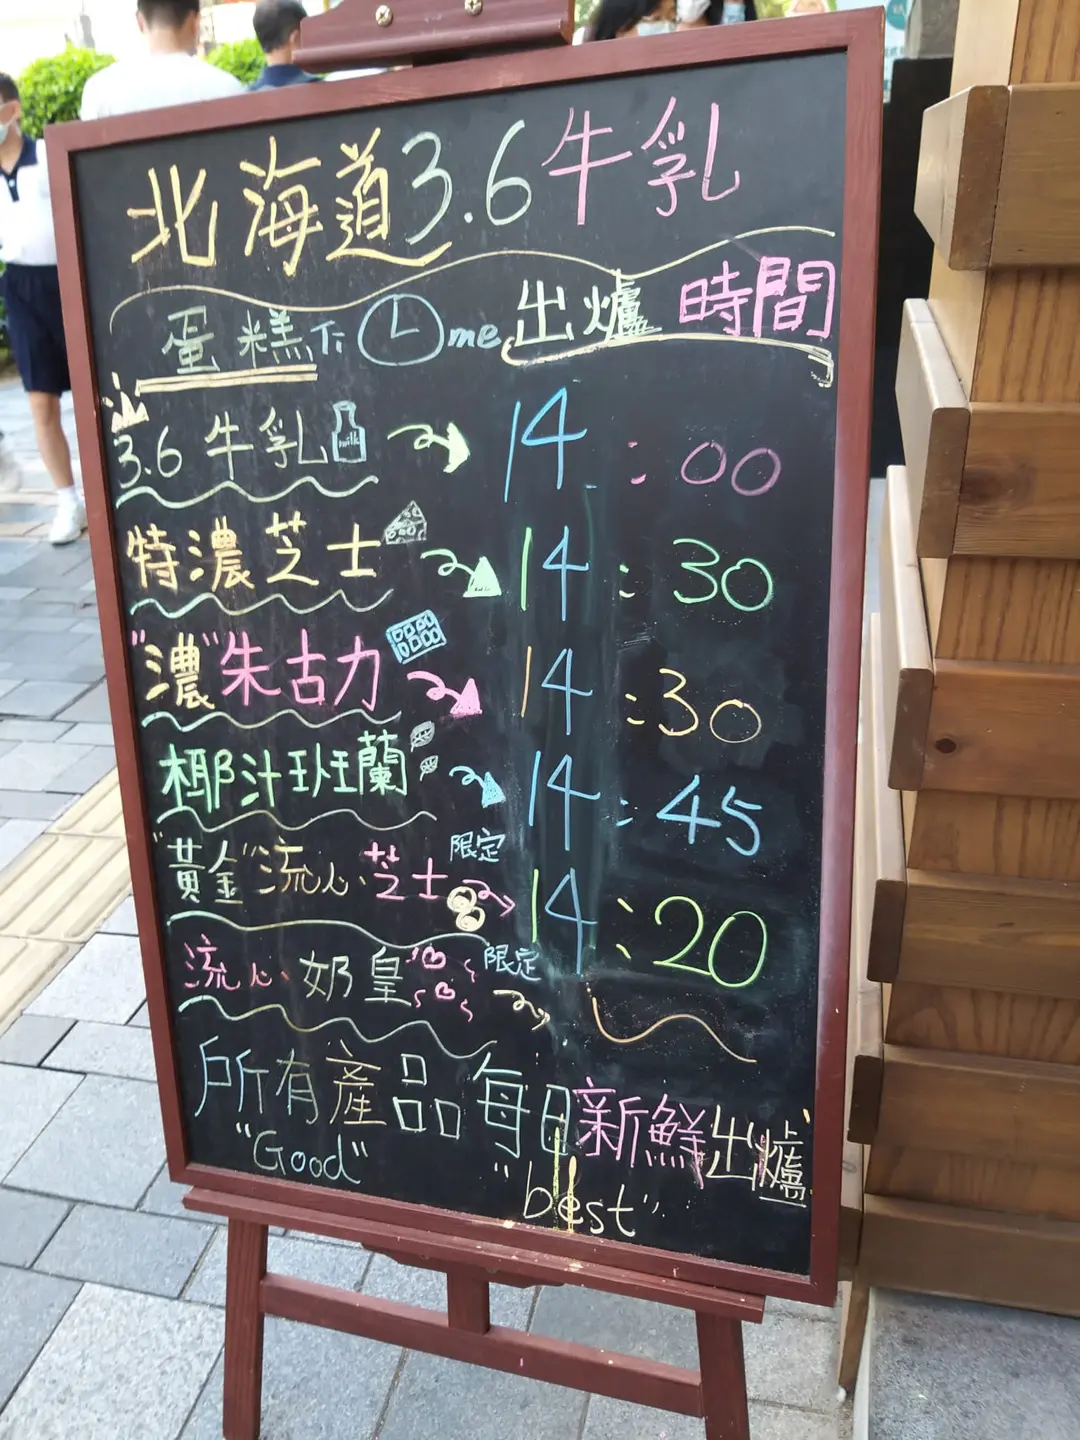 北海道3.6牛乳
蛋糕 Time 出爐 時間
3.6 牛乳 milk 14:00
特濃芝士 14:30
"濃"朱古力 14:30
椰汁班蘭 14:45
"黃金"流心芝士 限定 14:20
流心奶皇 限定
所有產品每日新鮮出爐
"Good" "best"